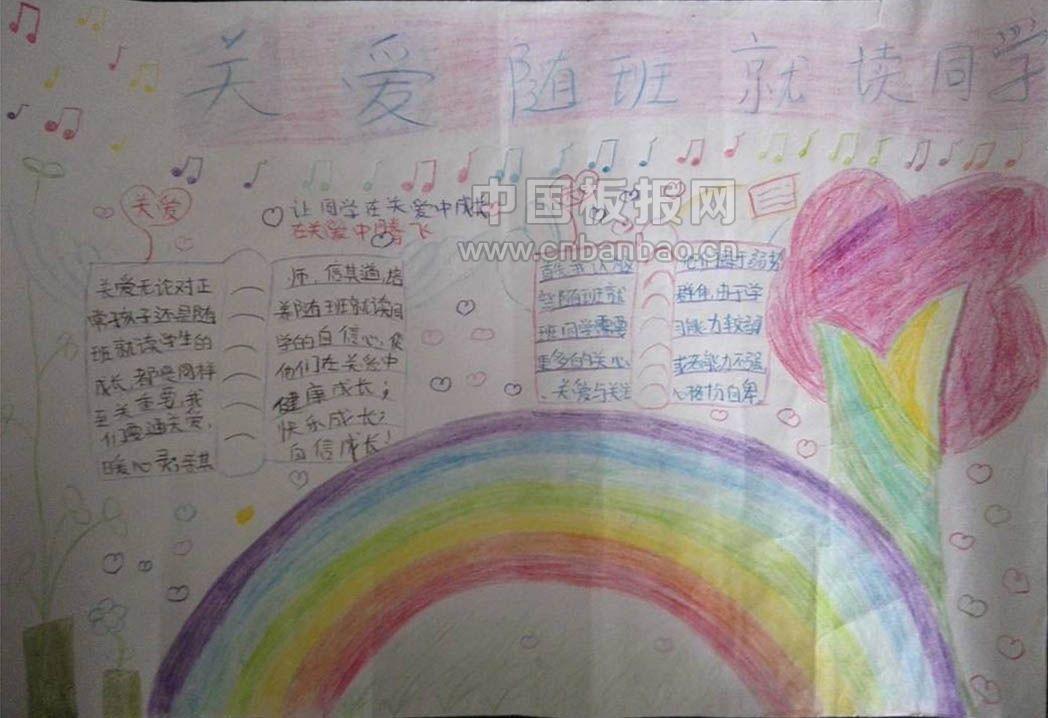 关爱随班就读同学
中国板报网
www.cnbanbao.cn
关爱
让同学在关爱中成长
在关爱中腾飞
关爱无论对正
常孩子还是随
班就读学生的
成长,都是同样
至关重要,我
们要通关爱,
暖心灵,亲其
师,信其道,培
养随班就读同
学的自信心,使
他们在关爱中
健康成长;
快乐成长;
自信成长!
随班就
班同学需要
更多的关心
、关爱与关注
他们属于弱势
群体,由于学
习能力较弱
或者能力不强
心格扮自卑。